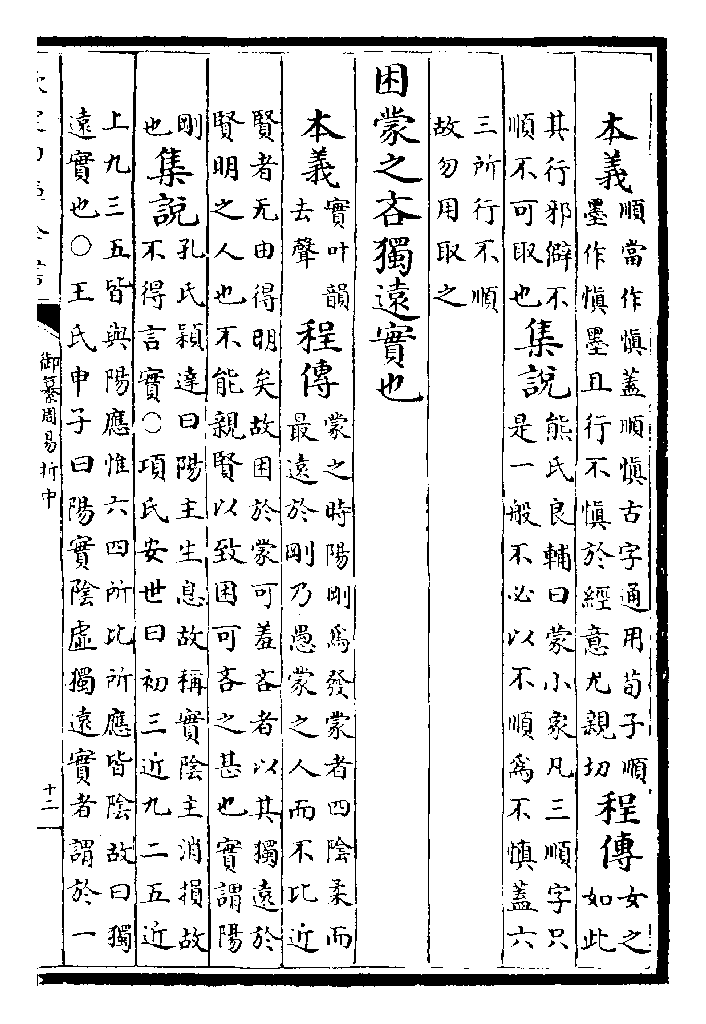 本義順當作慎蓋順慎古字通用荀子順
墨作慎墨且行不慎於經意尤親切程傳女之
如此
其行邪僻不
順不可取也集說熊氏良輔曰蒙小象凡三順字只
是一般不必以不順爲不慎蓋六
三所行不順
故勿用取之
困蒙之吝獨遠實也
本義實叶韻
去聲程傳蒙之時陽剛爲發蒙者四陰柔而
最遠於剛乃愚蒙之人而不比近
賢者无由得明矣故困於蒙可羞吝者以其獨遠於
賢明之人也不能親賢以致困可吝之甚也實謂陽
剛
也集說孔氏穎達曰陽主生息故稱實陰主消損故
不得言實○項氏安世曰初三近九二五近
上九三五皆與陽應惟六四所比所應皆陰故曰獨
遠實也○王氏申子曰陽實陰虛獨遠實者謂於一
御纂周易折中
十二